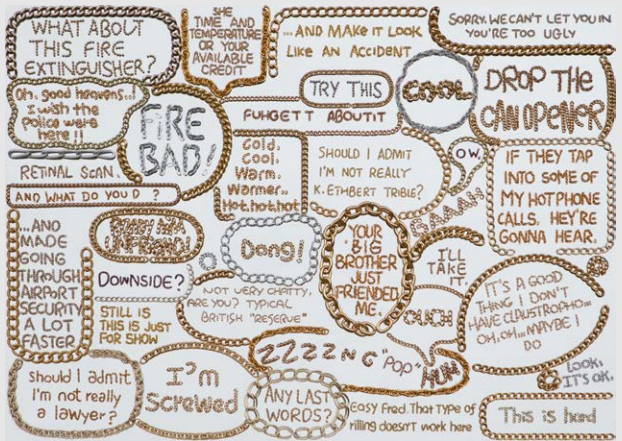 WHAT ABOUT
THIS FIRE
EXTINGUISHER?
SHE
TIME AND
TEMPERATURE
OR YOUR
AVAILABLE
CREDIT
...AND MAKE IT LOOK
LIKE AN ACCIDENT
SORRY. WE CAN'T LET YOU IN
YOU'RE TOO UGLY
Oh, good heavens..!
I wish the
Police were
here!!
FIRE
BAD!
TRY THIS
COOL
DROP THE
CAN OPENER
FUHGETT ABOUTIT
RETINAL SCAN.
AND WHAT DO YOU D ?
Cold.
Cool.
Warm.
Warmer..
Hot.hot.hot
SHOULD I ADMIT
I'M NOT REALLY
K. ETHBERT TRIBLE?
OW.
GAAAH
IF THEY TAP
INTO SOME OF
MY HOT PHONE
CALLS. HEY'RE
GONNA HEAR.
...AND
MADE
GOING
THROUGH
AIRPORT
SECURITY
A LOT
FASTER
Dong!
YOUR
BIG
BROTHER
JUST
FRIENDED
ME.
I'LL
TAKE
IT.
DOWNSIDE?
STILL IS
THIS IS JUST
FOR SHOW
NOT VERY CHATTY,
ARE YOU? TYPICAL
BRITISH "RESERVE"
OUCH
IT'S A GOOD
THING I DON'T
HAVE CLAUSTROPHO...
OH, OH...MAYBE I
DO
ZZZZNG "POP"
HUH
LOOK,
IT'S OK.
Should I admit
I'm not really
a lawyer?
I'm
Screwed
ANY LAST
WORDS?
Easy Fred. That type of
rilling doesn't work here
This is hard